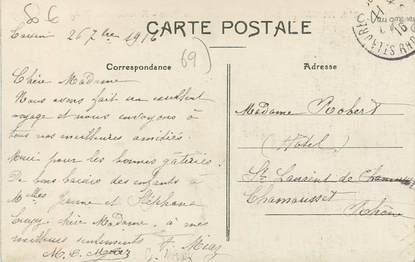 CARTE POSTALE
26 7bre 1916
69
Correspondance
Adresse
Chère Madame
Nous avons fait un excellent
voyage et nous envoyons à
tous nos meilleures amitiés.
Merci pour les bonnes gâteries.
De bons baisers des enfants à
Melles Jeanne et Stéphanie
Croyez chère Madame, à mes
meilleurs sentiments
Madame Robert
(Hôtel)
St Laurent de
Chamousset
Rhône